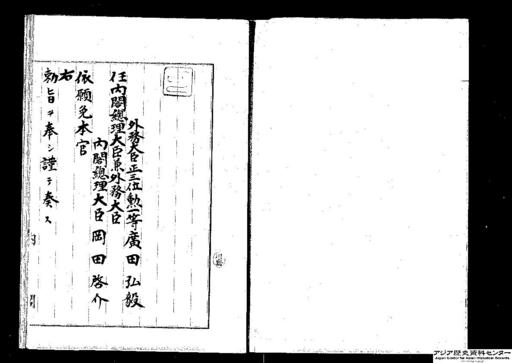 外務大臣正三位勲一等廣田弘毅
任内閣總理大臣兼外務大臣
内閣總理大臣岡田啓介
依願免本官
右
勅旨ヲ奉シ謹テ奏ス
内閣
アジア歴史資料センター
Japan Center for Asian Historical Records